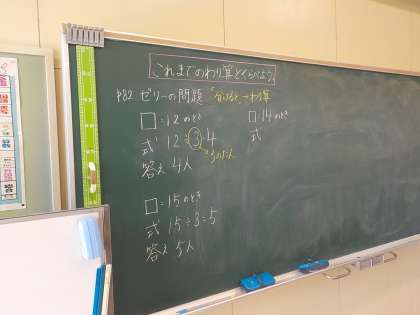 これまでのわり算とくらべよう。
P82 ゼリーの問題 「分けると」→わり算
□=12のとき
式 12÷3=4
答え 4人
□=15のとき
式 15÷3=5
答え 5人
□=14のとき
式